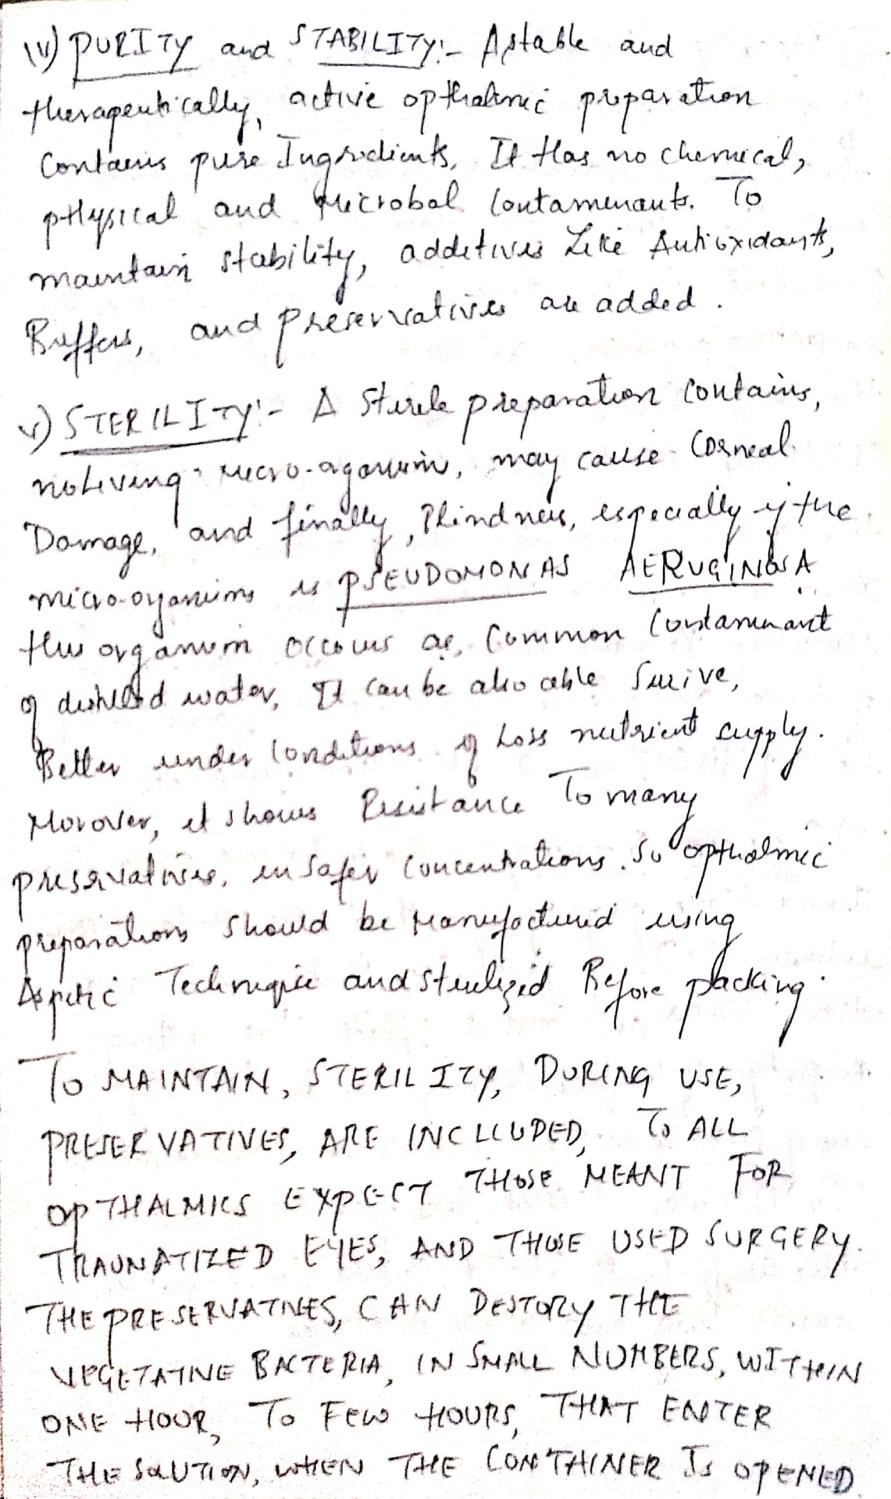 iv) PURITY and STABILITY:- A stable and
therapeutically, active opthalmic preparation
Contains pure Ingredients, It Has no chemical,
pHysical and Microbal Contaminants. To
maintain stability, additives Like Antioxidants,
Buffers, and preservatives are added.
v) STERILITY:- A Sterile preparation contains,
no Living micro-aganism, may cause Corneal
Damage, and finally, Blindness, especially if the
micro-oganisms is PSEUDOMONAS AERUGINOSA
this organism occours as, Common Contaminant
of distilled water, It can be also able Surive,
Better under Conditions of Loss nutrient supply.
Morover, it shows Resistance To many
preservatives, in safer Concentrations. So opthalmic
preparations should be Manufactured using
Aspetic Technique and sterilized Before packing.
To MAINTAIN, STERILITY, DURING USE,
PRESERVATIVES, ARE INCLUDED, To ALL
OPTHALMICS EXPECT THOSE MEANT FOR
TRAUNATIZED EYES, AND THOSE USED SURGERY.
THE PRESERVATIVES, CAN DESTORY THE
VEGETATIVE BACTERIA, IN SMALL NUMBERS, WITHIN
ONE HOUR, To FEW HOURS, THAT ENTER
THE SOLUTION, WHEN THE CONTHAINER Is OPENED